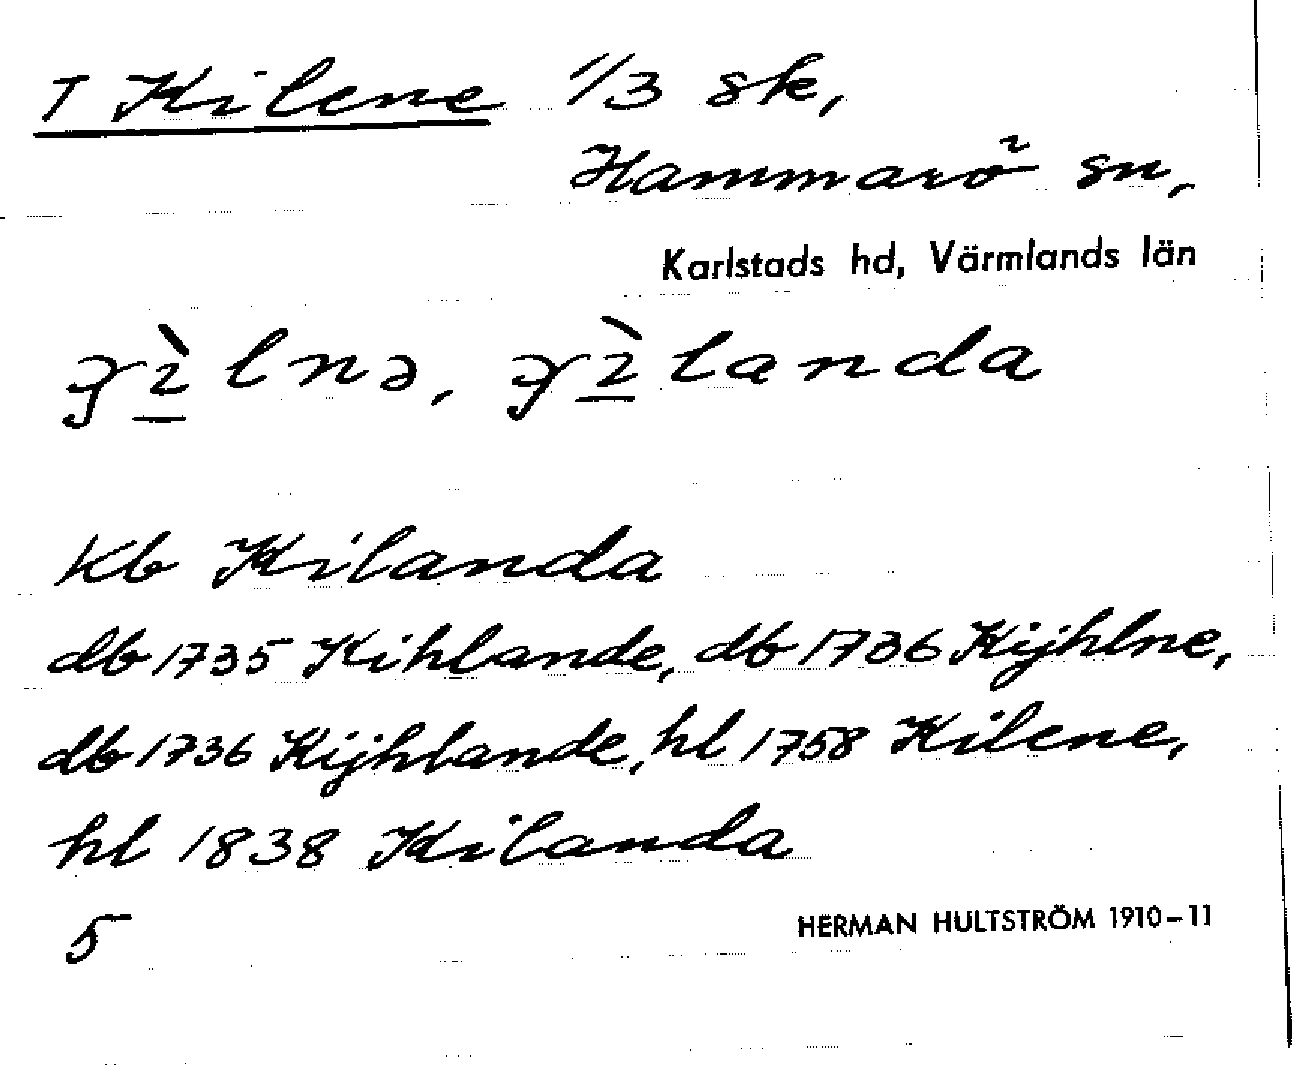 T Kilene 1/3 sk,
Hammarö sn,
Karlstads hd, Värmlands län
lnə, landa
Kb Kilanda
db 1735 Kihlande, db 1736 Kijhlne,
db 1736 Kijhlande, hl 1758 Kilene,
hl 1838 Kilanda
5
HERMAN HULTSTRÖM 1910–11